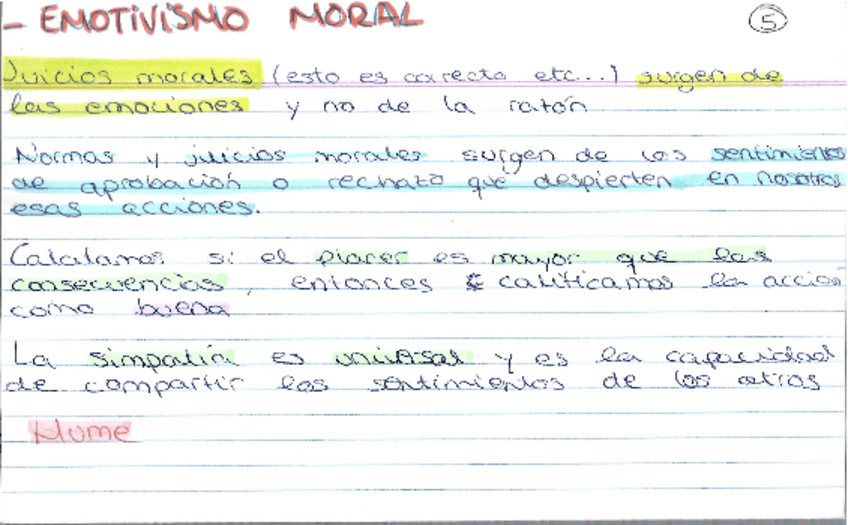 - EMOTIVISMO MORAL
5
Juicios morales (esto es correcto etc...) surgen de
las emociones y no de la razón
Normas y juicios morales surgen de los sentimientos
de aprobación o rechazo que despierten en nosotros
esas acciones.
Calculamos si el placer es mayor que las
consecuencias, entonces calificamos la acción
como buena
La simpatía es universal y es la capacidad
de compartir los sentimientos de los otros
Hume